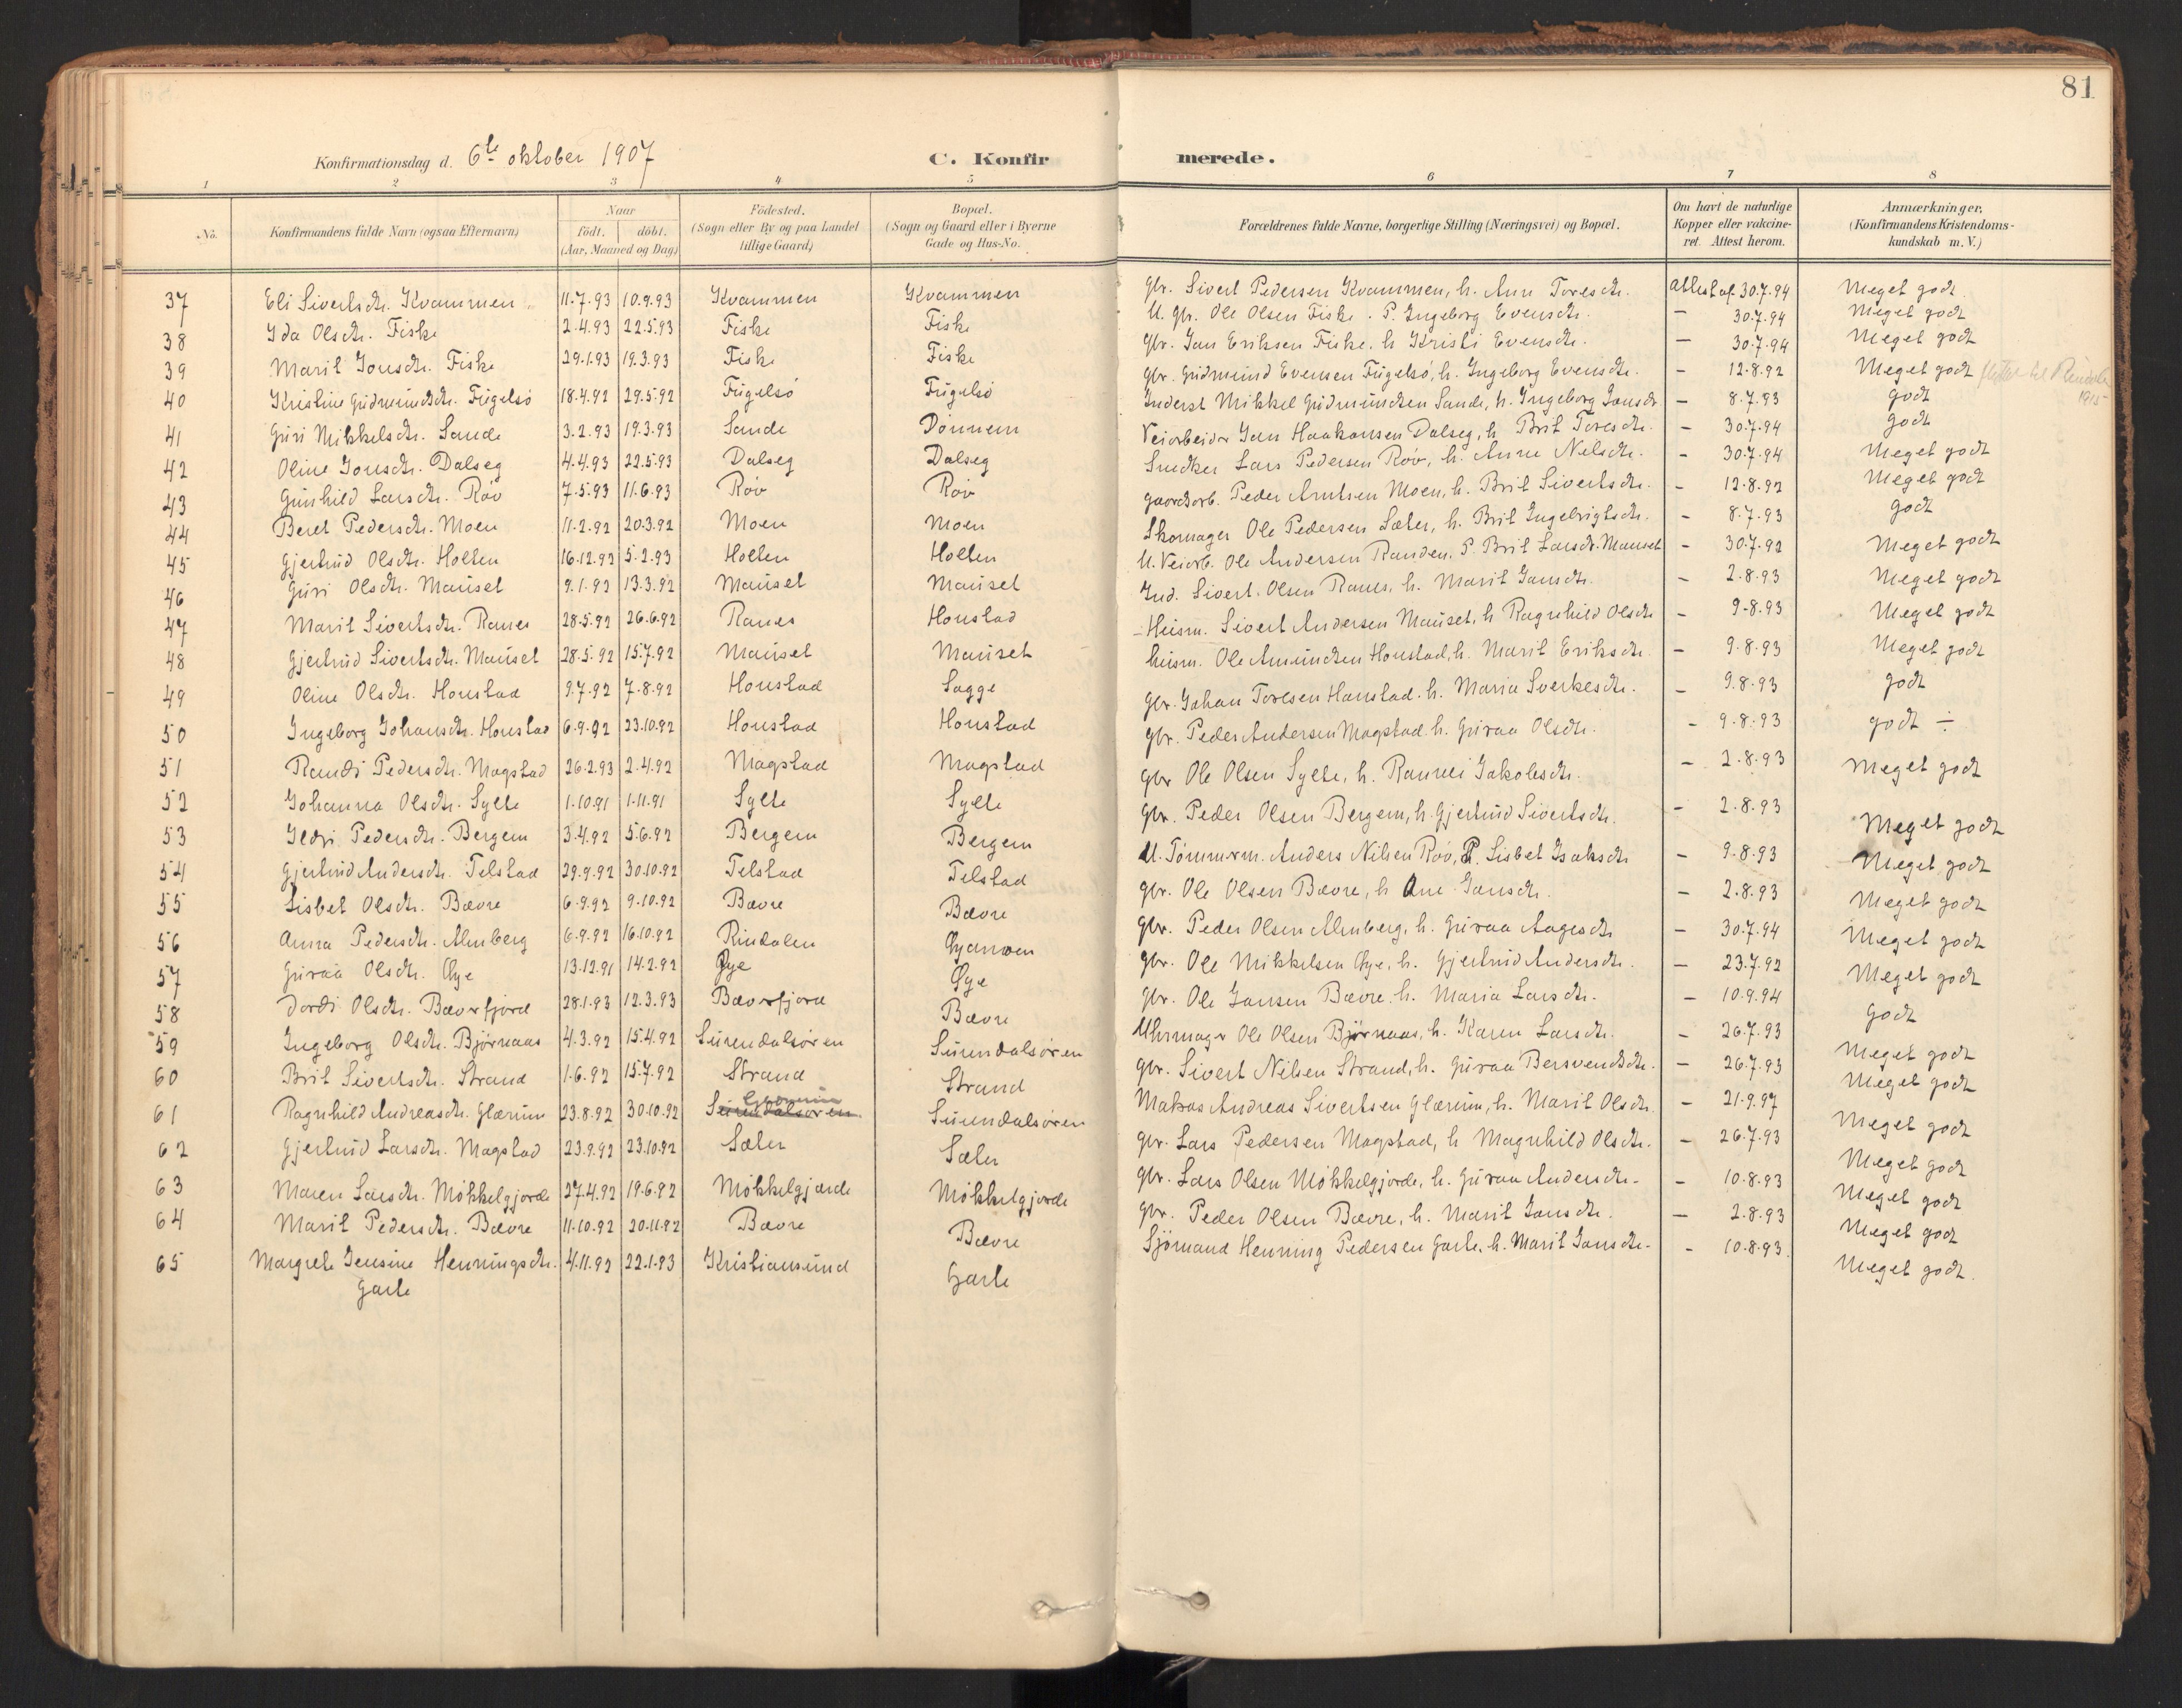 81
Konfirmationsdag d. 6te oktober 1907 C. Konfirmerede.
1 2 3 4 5 6 7 8
No. Konfirmandens fulde Navn (ogsaa Efternavn) Naar födt. döbt. (Aar, Maaned og Dag) Födested. (Sogn eller By og paa Landet tillige Gaard) Bopæl. (Sogn og Gaard eller i Byerne Gade og Hus-No. Forældrenes fulde Navne, borgerlige Stilling (Næringsvei) og Bopæl. Om havt de naturlige Kopper eller vakcineret. Attest herom. Anmærkninger, (Konfirmandens Kristendomskundskab m. V.)
37 Eli Sivertsdtr. Kvammen 11.7.93 10.9.93 Kvammen Kvammen Gbr. Sivert Pedersen Kvammen, h. Ane Toresdtr. Attest af 30.7.94 Meget godt.
38 Ida Olsdtr. Fiske 2.4.93 22.5.93 Fiske Fiske U. Gbr. Ole Olsen Fiske. P. Ingeborg Evensdtr. — 30.7.94 Meget godt
39 Marit Jonsdtr. Fiske 29.1.93 19.3.93 Fiske Fiske Gbr. Jon Eriksen Fiske. h Kristi Evensdtr. — 30.7.94 Meget godt
40 Kristine Gudmundsdtr. Fugelsö 18.4.92 29.5.92 Fugelsö Fugelsö Gbr. Gudmund Evensen Fugelsö, h. Ingeborg Evensdtr. — 12.8.92 Meget godt flyttet til Rindalen 1915
41 Guri Mikkelsdtr. Sande 3.2.93 19.3.93 Sande Dönnem Inderst Mikkel Gudmundsen Sande, h. Ingeborg Jonsdtr — 8.7.93 godt
42 Oline Jonsdtr. Dalseg 4.4.93 22.5.93 Dalseg Dalseg Veiarbeider Jon Haakonsen Dalseg, h Brit Toresdtr. — 30.7.94 godt
43 Gunhild Larsdtr. Röv 7.5.93 11.6.93 Röv Röv Snedker Lars Pedersen Röv, h. Anne Nelsdtr. — 30.7.94 Meget godt
44 Beret Pedersdtr. Moen 11.2.92 20.3.92 Moen Moen Gaardsarb. Peder Arntsen Moen, h. Brit Sivertsdtr. — 12.8.92 Meget godt
45 Gjertrud Olsdtr. Holten 16.12.92 5.2.93 Holten Holten Skomager Ole Pedersen Sæter, h. Brit Ingebrigtsdtr. — 8.7.93 godt
46 Guri Olsdtr. Mauset 9.1.92 13.3.92 Mauset Mauset U. Veiarb. Ole Andersen Randen. P. Brit Larsdtr. Mauset — 30.7.92 Meget godt
47 Marit Sivertsdtr. Ranes 28.5.92 26.6.92 Ranes Honstad Ind. Sivert. Olsen Ranes, h. Marit Jonsdtr. — 2.8.93 Meget godt
48 Gjertrud Sivertsdtr. Mauset 28.5.92 15.7.92 Mauset Mauset Husm. Sivert Andersen Mauset, h Ragnhild Olsdtr — 9.8.93 Meget godt
49 Oline Olsdtr. Honstad 9.7.92 7.8.92 Honstad Sagge husm. Ole Amundsen Honstad, h. Marit Eriksdtr. — 9.8.93 Meget godt
50 Ingeborg Johansdtr. Honstad 6.9.92 23.10.92 Honstad Honstad Gbr. Johan Toresen Honstad. h. Maria Sverkesdtr. — 9.8.93 godt
51 Randi Pedersdtr. Magstad 26.2.93 2.4.92 Magstad Magstad Gbr. Peder Andersen Magstad. h. Guraa Olsdtr. — 9.8.93 godt ÷
52 Johanna Olsdtr. Sylte 1.10.91 1.11.91 Sylte Sylte Gbr Ole Olsen Sylte, h. Rannei Jakobsdtr. — 2.8.93 Meget godt
53 Ildri Pedersdtr. Bergem 3.4.92 5.6.92 Bergem Bergem Gbr. Peder Olsen Bergem, h. Gjertrud Sivertsdtr. — 2.8.93 Meget godt
54 Gjertrud Andersdtr. Telstad 29.9.92 30.10.92 Telstad Telstad U. Tömmerm. Anders Nilsen Röv, P. Lisbet Isaksdtr — 9.8.93 Meget godt
55 Lisbet Olsdtr. Bævre 6.9.92 9.10.92 Bævre Bævre Gbr. Ole Olsen Bævre, h Ane Jonsdtr. — 2.8.93 Meget godt
56 Anna Pedersdtr. Almberg 6.9.92 16.10.92 Rindalen Gbr. Peder Olsen Almberg, h. Guraa Aagesdtr — 30.7.94 Meget godt
57 Guraa Olsdtr. Øye 13.12.91 14.2.92 Øye Øye Gbr. Ole Mikkelsen Øye, h. Gjertrud Andersdtr. — 23.7.92 Meget godt
58 Dordi Olsdtr. Bæverfjord 28.1.93 12.3.93 Bæverfjord Bævre Gbr. Ole Jonsen Bævre. h. Maria Larsdtr. — 10.9.94 Godt
59 Ingeborg Olsdtr. Björnaas 4.3.92 15.4.92 Surendalsören Surendalsören Uhrmager Ole Olsen Björnaas, h. Karen Larsdtr. — 26.7.93 Meget godt
60 Brit Sivertsdtr. Strand 1.6.92 15.7.92 Strand Strand Gbr. Sivert Nilsen Strand, h. Guraa Bersvendsdtr. — 26.7.93 Meget godt
61 Ragnhild Andreasdtr. Glærum 23.8.92 30.10.92 Surendalsören Glærum Surendalsören Andreas Sivertsen Glærum, h. Marit Olsdtr. — 21.9.97 Meget godt
62 Gjertrud Larsdtr. Magstad 23.9.92 23.10.92 Sæter Sæter Gbr. Lars Pedersen Magstad, h Magnhild Olsdtr. — 26.7.93 Meget godt
63 Maren Larsdtr. Mökkelgjerde 27.4.92 19.6.92 Mökkelgjerde Mökkelgjerde Gbr. Lars Olsen Mökkelgjerde, h. Guraa Andersdtr. — 10.8.93 Meget godt
64 Marit Pedersdtr. Bævre 11.10.92 20.11.92 Bævre Bævre Gbr. Peder Olsen Bævre, h. Marit Jonsdtr. — 2.8.93 Meget godt
65 Margrete Jensine Henningsdtr. Garte 4.11.92 22.1.93 Kristiansund Garte Sjömand Henning Pedersen Garte, h. Marit Jonsdtr. — 10.8.93. Meget godt.